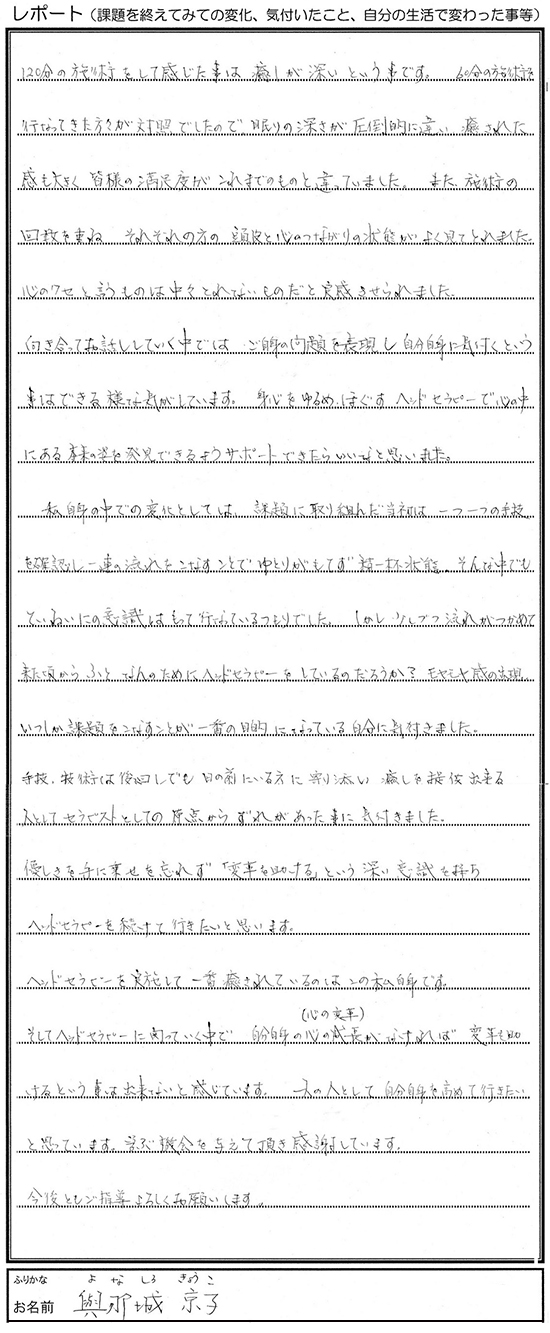 レポート（課題を終えてみての変化、気付いたこと、自分の生活で変わった事等）
120分の施術をして感じた事は 癒しが深いという事です。 60分の施術を
行なってきた方々が対照でしたので 眠りの深さが圧倒的に違い 癒された
感も大きく 皆様の満足度がこれまでのものと違っていました。 また、施術の
回数を重ね それぞれの方の 頭皮と心のつながりの状態がよく見てとれました。
心のクセと言うものは中々とれないものだと実感させられました。
向き合ってお話ししていく中では ご自身の問題を表現し自分自身に気付くという
事はできる様な気がしています。 身心をゆるめ、ほぐすヘッドセラピーで心の中
にある本来の姿を発見できるようサポートできたらいいなと思いました。
私自身の中での変化としては、課題に取り組んだ当初は 一つ一つの手技
を確認し一連の流れをこなすことでゆとりがもてず精一杯状態。そんな中でも
ていねいにの意識はもって行なっているつもりでした。 しかし少しづつ流れがつかめて
来た頃から ふと なんのためにヘッドセラピーをしているのだろうか? モヤモヤ感の出現、
いつしか課題をこなすことが一番の目的になっている自分に気付きました。
手技、技術は後回しでも 目の前にいる方に寄り添い 癒しを提供出来る
人としてセラピストとしての原点からずれがあった事に気付きました。
優しさを手に乗せを忘れず「変革を助ける」という深い意識を持ち
ヘッドセラピーを続けて行きたいと思います。
ヘッドセラピーを実施して一番癒されているのはこの私自身です。
(心の変革)
そしてヘッドセラピーに関っていく中で 自分自身の心の成長がなければ 変革を助
けるという事は出来ないと感じています。 一人の人として自分自身を高めて行きたい
と思っています。学ぶ機会を与えて頂き感謝しています。
今後ともご指導よろしくお願いします。
ふりかな よなしろ きょうこ
お名前 與那城 京子